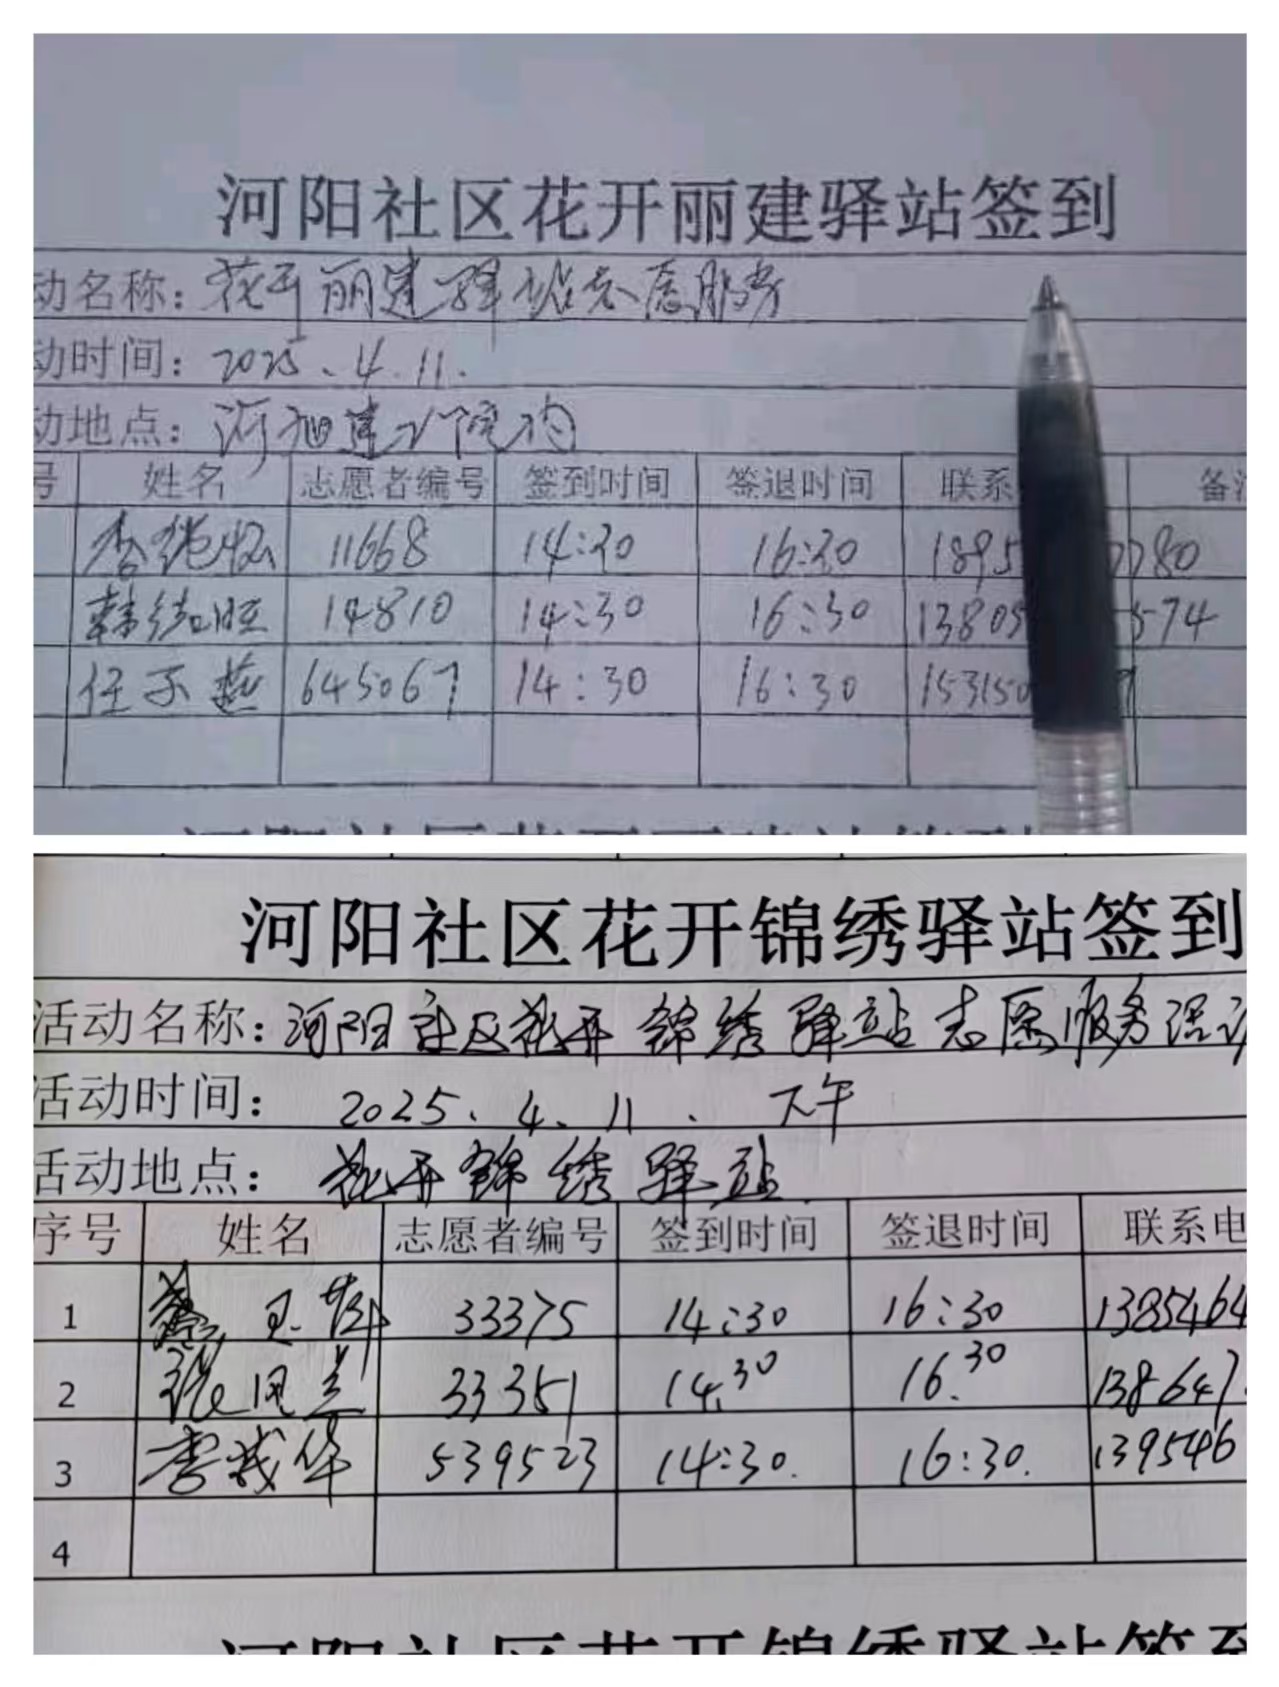 河阳社区花开丽建驿站签到
动名称：花开丽建驿站志愿服务
动时间：2025.4.11.
动地点：
号 姓名 志愿者编号 签到时间 签退时间 联系 备注
11668 14:30 16:30 1895 780
14810 14:30 16:30 13805 574
任子燕 645067 14:30 16:30 153150
河阳社区花开锦绣驿站签到
活动名称：河阳社区花开锦绣驿站志愿服务活动
活动时间：2025.4.11.下午
活动地点：花开锦绣驿站
序号 姓名 志愿者编号 签到时间 签退时间 联系电
1 33375 14:30 16:30 1385464
2 张凤兰 33351 14:30 16:30 138647
3 李成华 539523 14:30. 16:30. 139546
4
河阳社区花开锦绣驿站签到